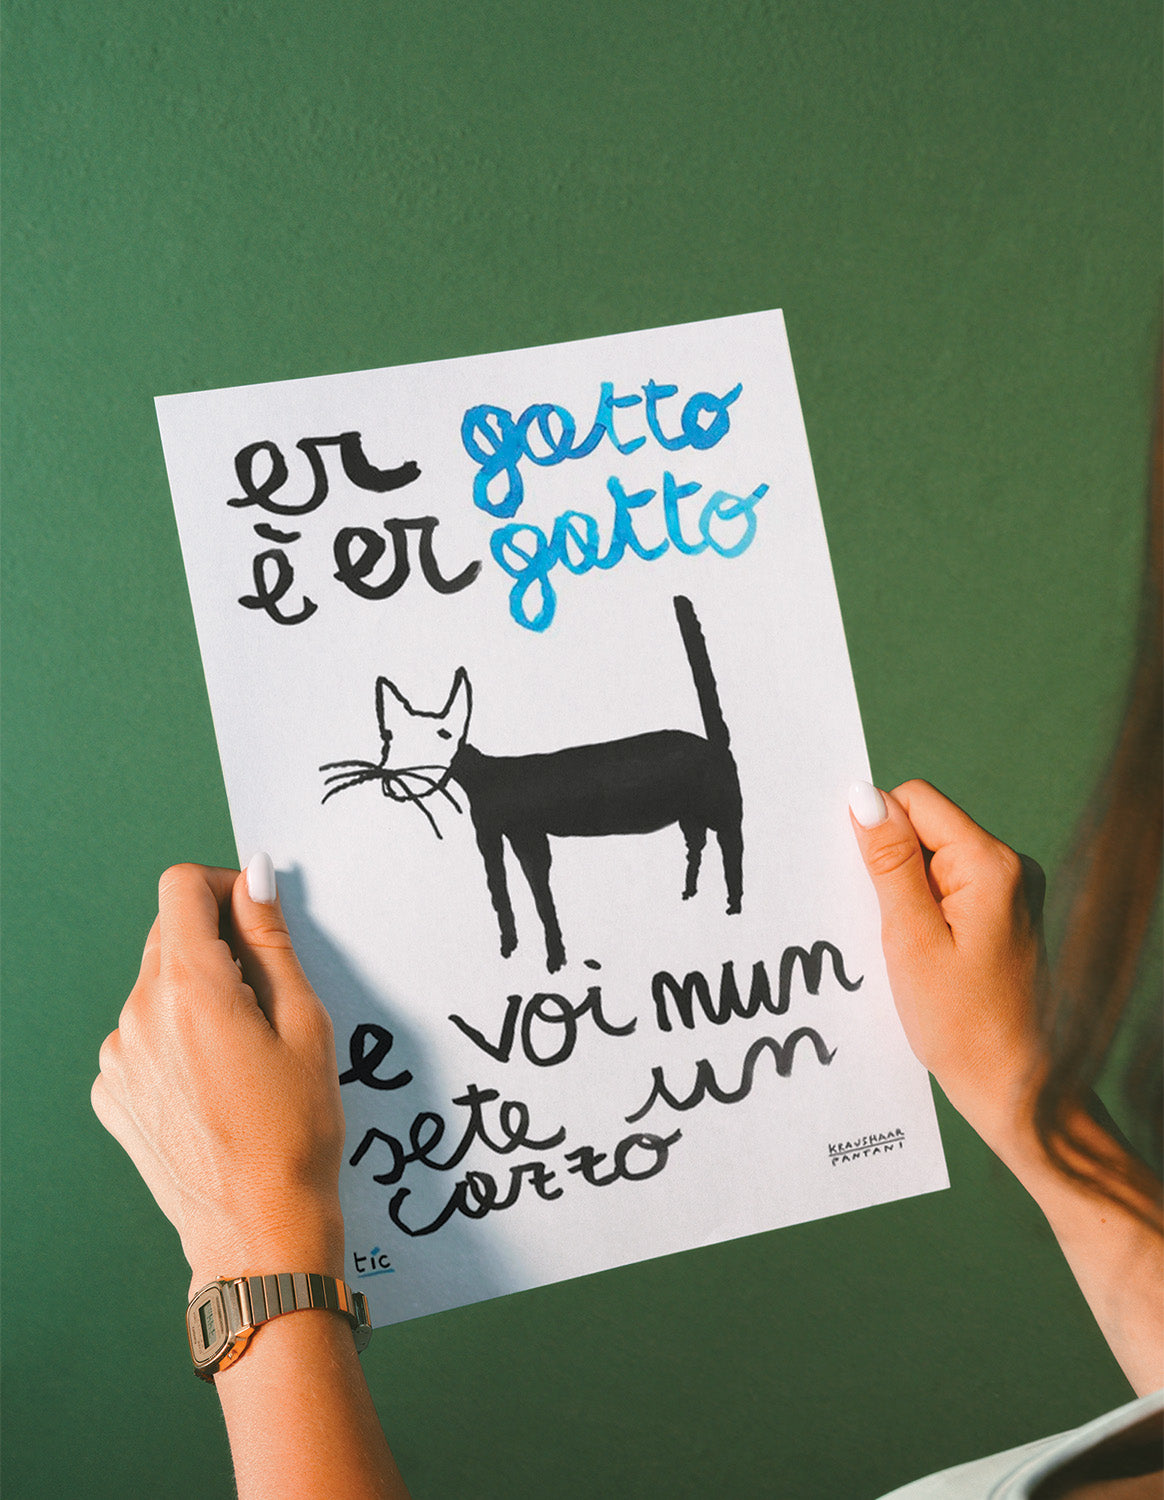 er gatto
è er gatto
e voi nun
sete un
cazzo
KRAUSHAAR
PANTANI
tic